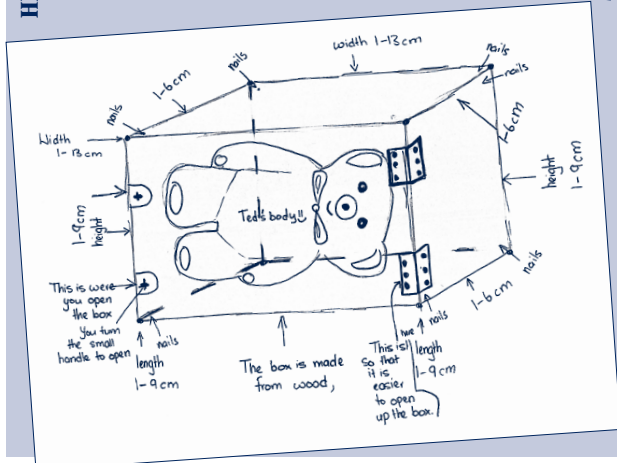 H
width 1-13cm
nails
nails
nails
1-6cm
nails
Width
1-13cm
1-6cm
height
1-9cm
1-9cm
height
Ted's body!!
This is were
you open
the box
You turn
the small
handle to open
nails
length
1-9cm
The box is made
from wood,
This is
so that
it is
easier
to open
up the box.
nails
length
1-9cm
1-6cm
nails